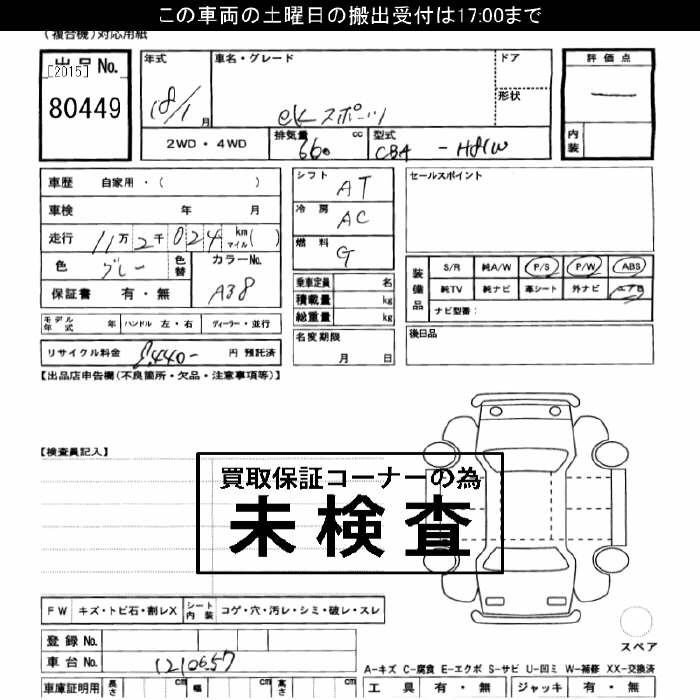 この車両の土曜日の搬出受付は17:00まで
(複合機)対応用紙
出品No.
[2015]
80449
年式
18/1
月
車名・グレード
eK スポーツ
ドア
形状
評価点
内装
2WD・4WD
排気量
660
cc
型式
CBA - H81W
車歴 自家用・( )
車検 年 月
走行 11万 2千 024 km マイル( )
色 グレー
色替
カラーNo.
A38
保証書 有・無
シフト
AT
冷房
AC
燃料
G
乗車定員 名
積載量 kg
総重量 kg
セールスポイント
装備品
S/R 純A/W P/S P/W ABS
純TV 純ナビ 革シート 外ナビ
ナビ型番:
モデル年式 年
ハンドル 左・右
ディーラー・並行
名変期限
月 日
後日品
リサイクル料金 8,440- 円 預託済
【出品店申告欄(不良箇所・欠品・注意事項等)】
【検査員記入】
買取保証コーナーの為
未検査
FW キズ・トビ石・割レX
シート内装
コゲ・穴・汚レ・シミ・破レ・スレ
登録No.
車台No. 1210657
スペア
A-キズ C-腐食 E-エクボ S-サビ U-凹ミ W-補修 XX-交換済
車庫証明用 長さ cm 幅 cm 高さ cm
工具 有・無 ジャッキ 有・無